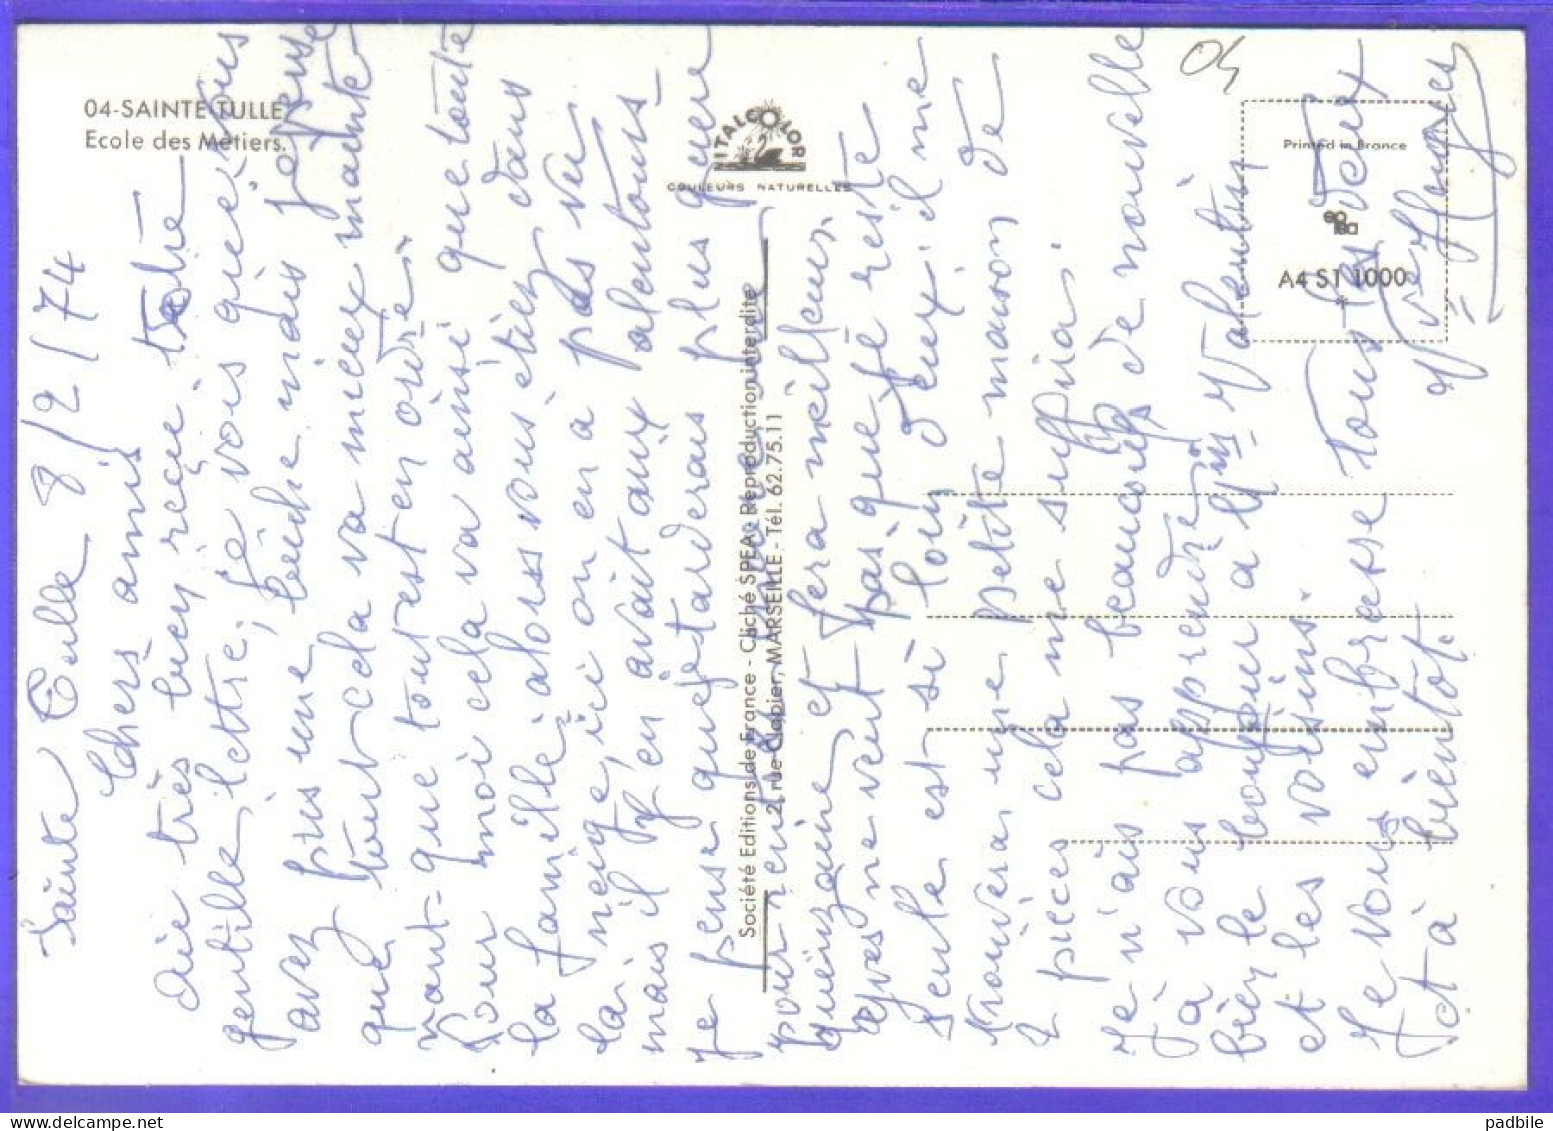 04-SAINTE TULLE
Ecole des Métiers.
ITALCOLOR
COULEURS NATURELLES
Société Editions de France - Cliché SPEA - Reproduction interdite
2, rue Clapier, MARSEILLE - Tél. 62.75.11
Printed in France
A4 S1 1000
*
04
Sainte Tulle 8/2/74
Chers amis
Oui très bien reçue votre
gentille lettre, je vois que vous
avez pris une bûche mais je pense
que tout cela va mieux mainte-
nant que tout est en ordre.
Pour moi cela va ainsi que toute
la famille, alors vous étiez dans
la neige, ici on en a pas vu
mais il y en avait aux alentours
je pense que je tarderais plus guère
pour rentrer
quinzaine et fera meilleur.
Yves ne veut pas que je reste
seule est si loin d'eux, il me
trouvera une petite maison de
2 pièces cela me suffira.
Je n'ais pas beaucoup de nouvelle
à vous apprendre,
bien le bonjour à Mme Valentin
et les voisins.
Je vous embrasse tous les deux
et à bientôt.